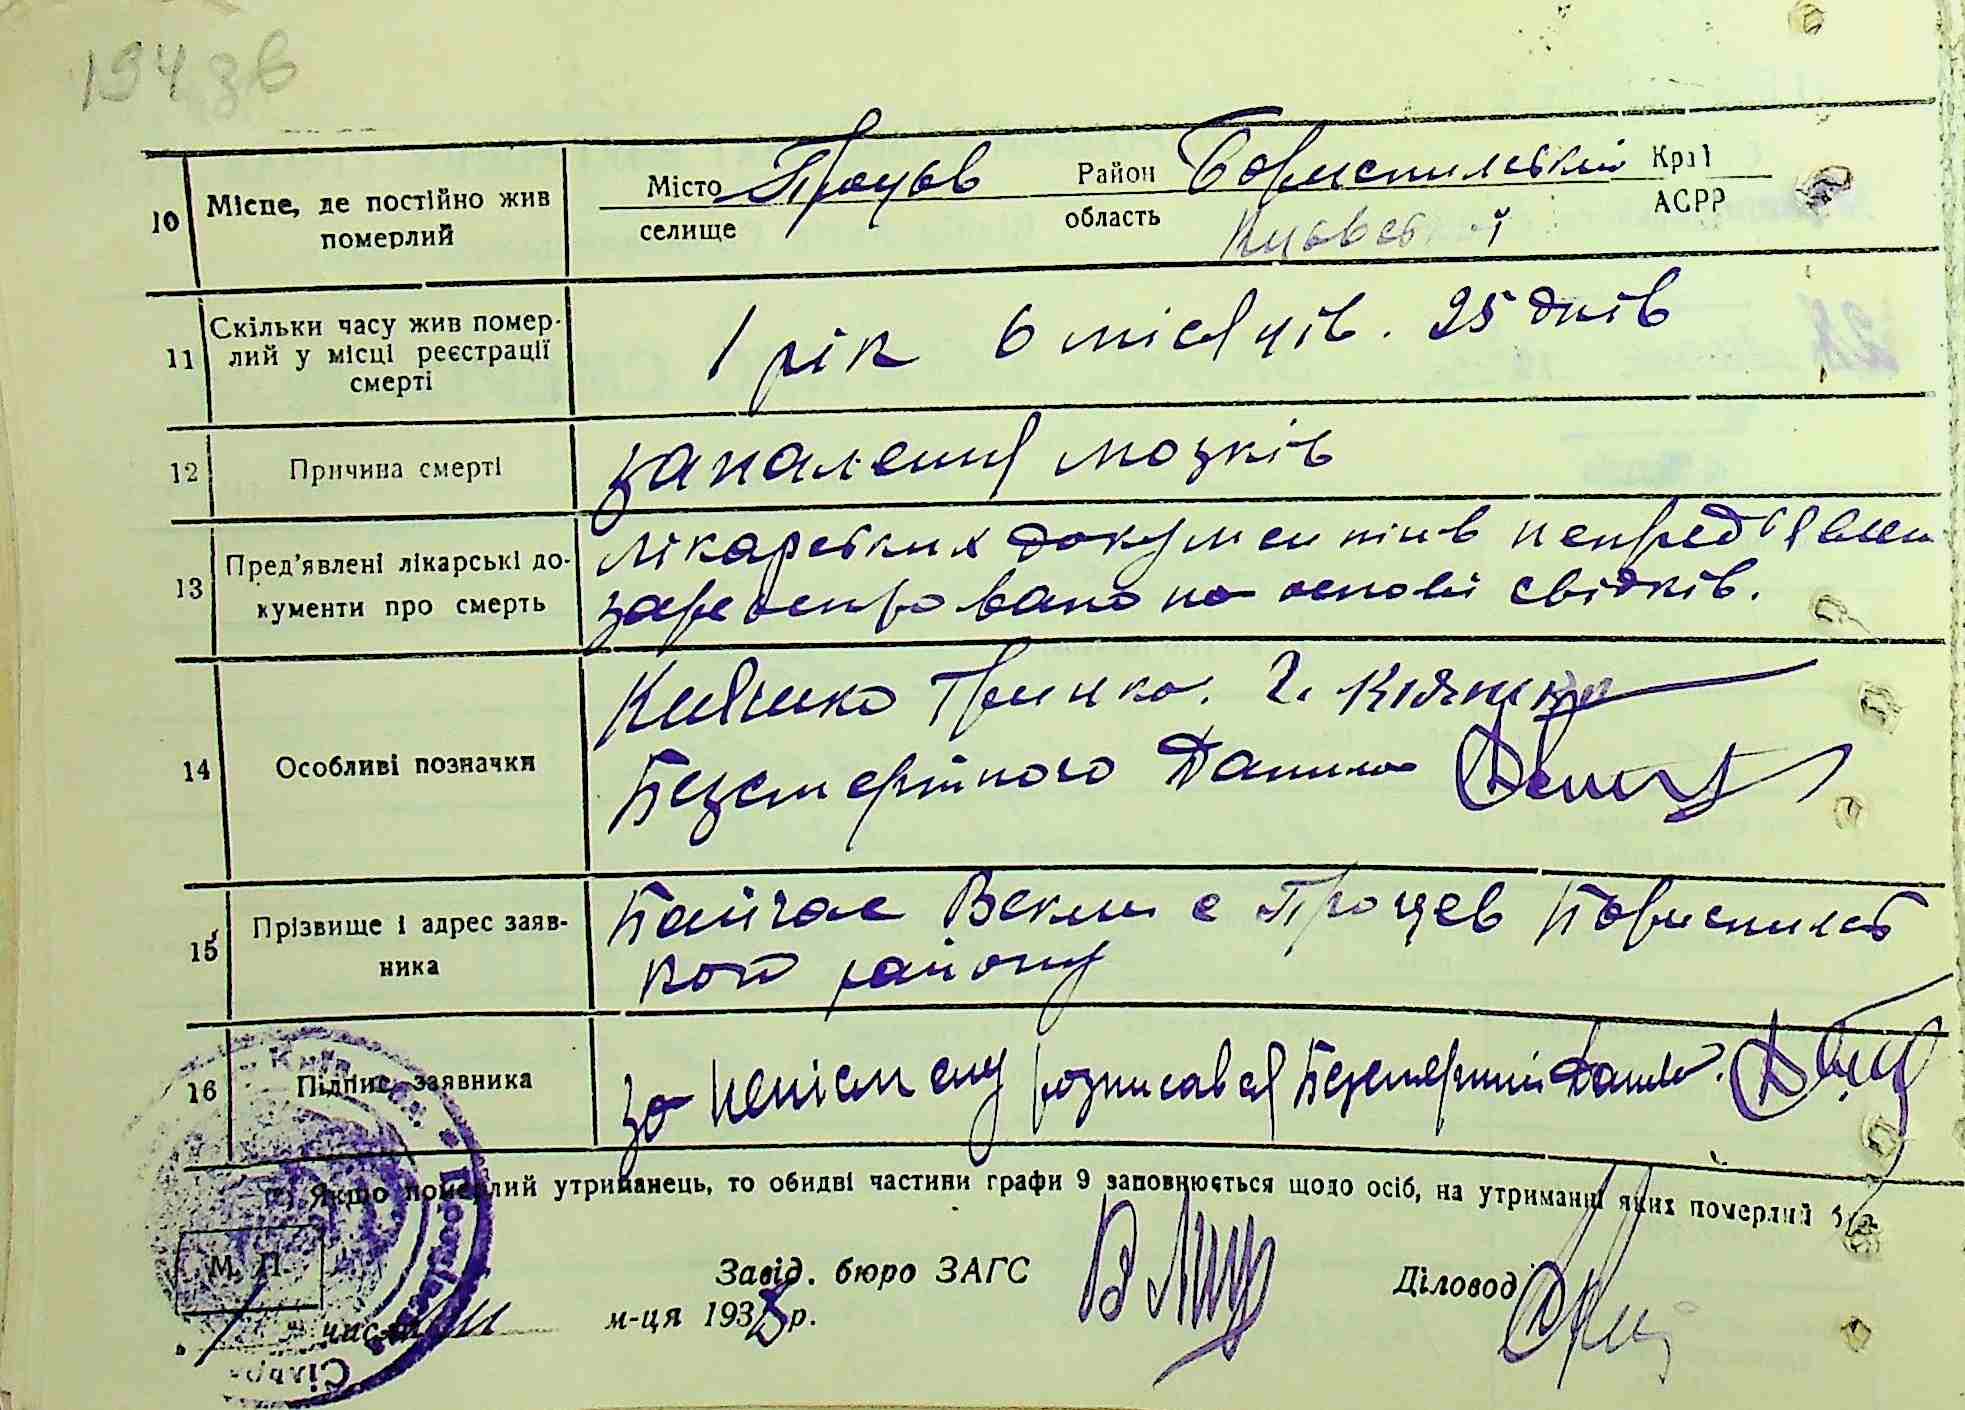 194 зв
10 Місце, де постійно жив померлий
Місто Процев Район Бориспильский Краї
селище область Киевской АСРР
11 Скільки часу жив помер-
лий у місці реєстрації
смерті
1 рік 6 місяців. 25 днів
12 Причина смерті
запаления мозків
13 Пред'явлені лікарські до-
кументи про смерть
лікарських документів непред'явлен
зареєстровано на основі свідків.
14 Особливі позначки
Кияшко Гришко. Г. Кияшко
Безсмертного Данило
15 Прізвище і адрес заяв-
ника
Векли с Процев Бориспилсь
кого району
16 Підпис заявника
за неписмену розписався Безсмертний Данило.
Якщо померлий утриманець, то обидві частини графи 9 заповнюється щодо осіб, на утриманні яких померлий був
М. П.
Завід. бюро ЗАГС
Діловод
" 1 " числа III м-ця 1938 р.